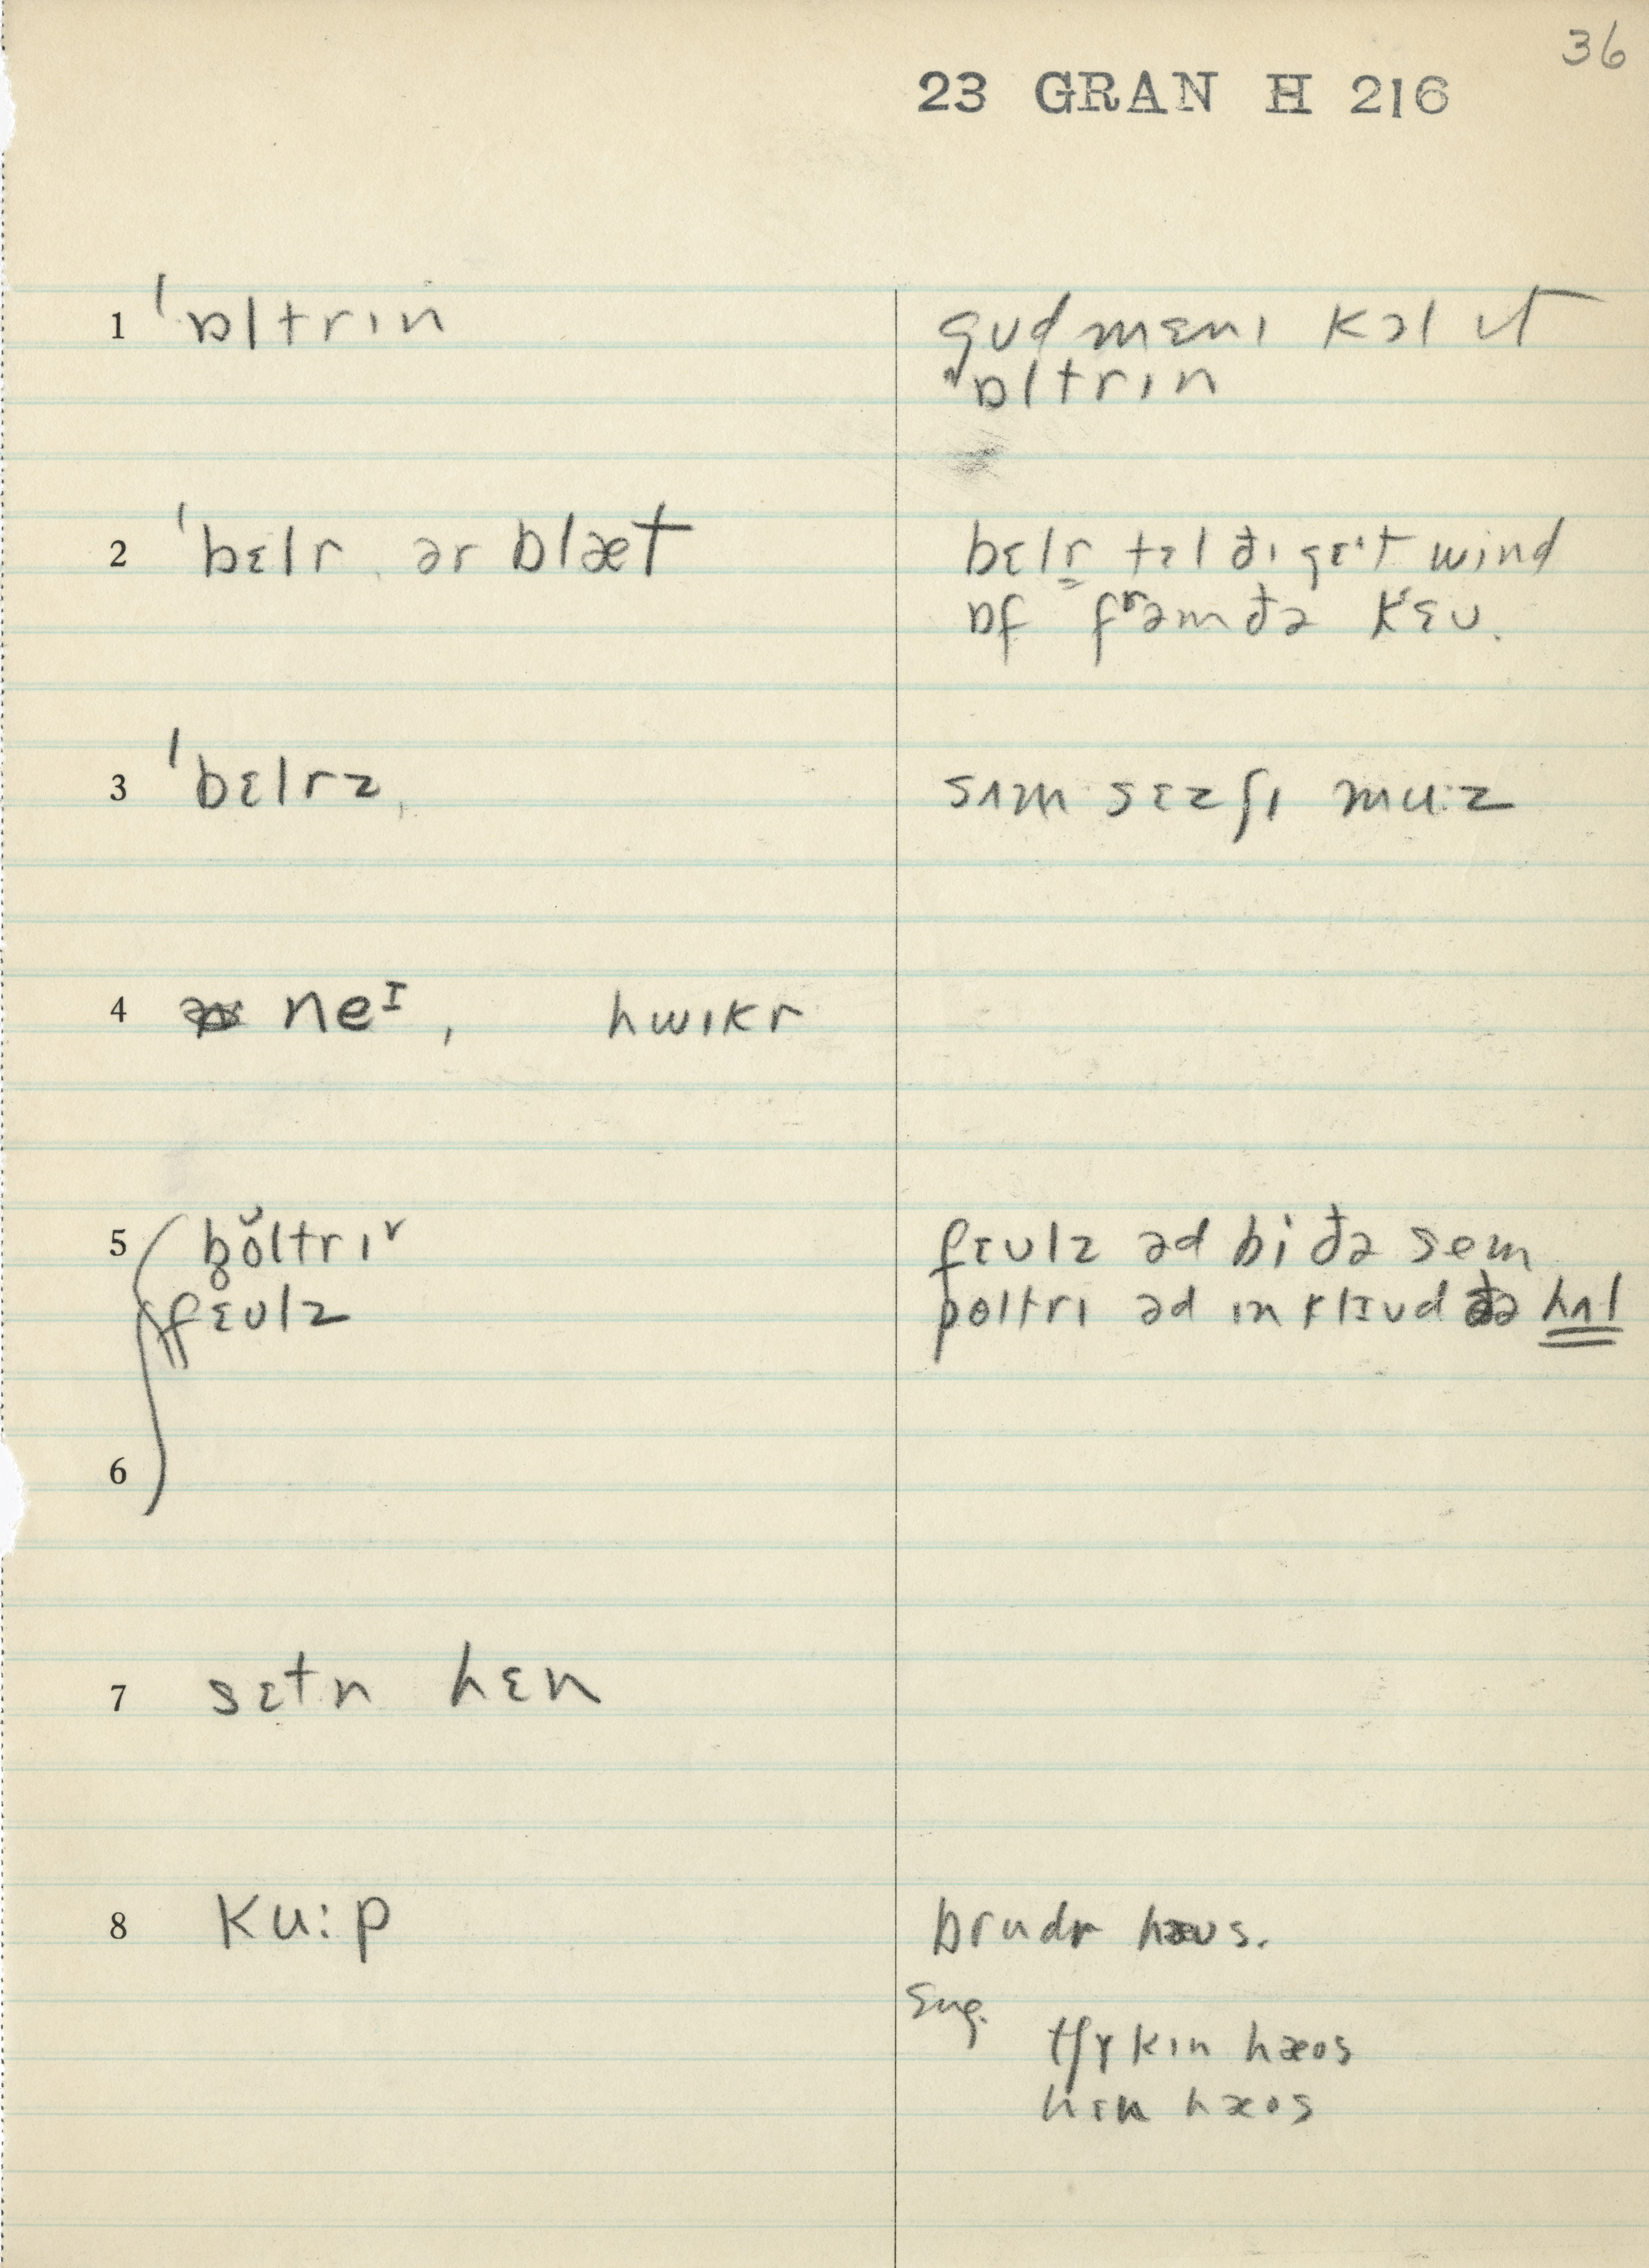 36
23 GRAN H 216
1 ˈɒltrɪn
gud mɛnɪ kɔl ɪt
ɒltrɪn
2 ˈbɛlr, ər blæt
bɛlr tɛl ðɪ gɛˑt wɪnd
ɒf frəm ðə kɛu.
3 ˈbɛlrz,
sʌm sɛz ʃɪ mu:z
4 neᴵ, hwɪkr
5 poltrɪ
fɛulz
fɛulz əd bi ðə sem
poltrɪ əd ɪnklɪud ðə hʌl
6
7 sɛtn hɛn
8 ku:p
brudr hæus.
Eng.
tʃɪkɪn hæos
hɛn hæos